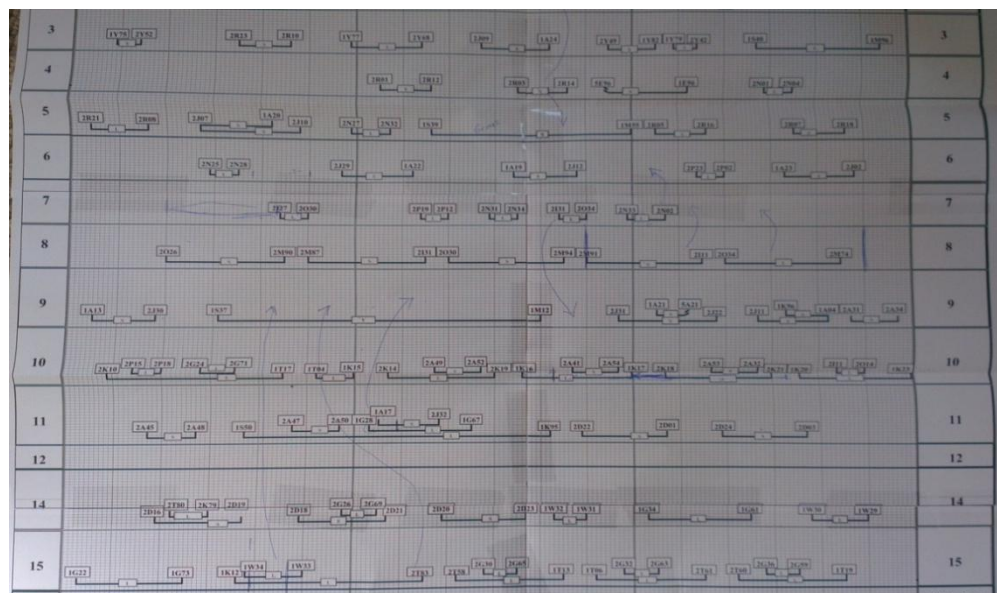 3 1Y75 2Y52 2R23 2R10 1Y77 2Y68 2J09 1A24 2Y49 1Y82 1Y79 2Y42 1S48 1M96 3
4 2R01 2R12 2R03 2R14 1E96 1E50 2N01 2N04 4
5 2R21 2R08 2J07 1A20 2J10 2N27 2N32 1S39 1M55 2R05 2R16 2R07 2R18 5
6 2N25 2N28 2J29 1A22 1A19 2J12 2P23 2P02 1A25 2J02 6
7 2I27 2O30 2P19 2P12 2N31 2N34 2I31 2O34 2N33 2N02 7
8 2O26 2M90 2M87 2I51 2O50 2M94 2M91 2I11 2O354 2M74 8
9 1A13 2J30 1S37 1M12 2J31 1A21 5A21 2J22 2J11 1K96 1A04 2A31 2A34 9
10 2K10 2P15 2P18 2G24 2G71 1T17 1T04 1K15 2K14 2A49 2A52 2K19 1K16 2A41 2A54 1K17 2K18 2A53 2A32 2K21 1K20 1K23 10
11 2A45 2A48 1S50 2A47 2A50 1G28 1A17 2J32 1G67 1K95 2D23 2D01 2D24 2D03 11
12 12
14 2D16 2T00 2K79 2D19 2D18 2G26 2G69 2D21 2D20 2D23 1W32 1W31 1G34 1G61 1W30 1W29 14
15 1G22 1G73 1K12 1W34 1W33 2T03 2T58 2G30 2G65 1T13 1T06 2G32 2G63 2T61 2T60 2G36 2G59 1T19 15